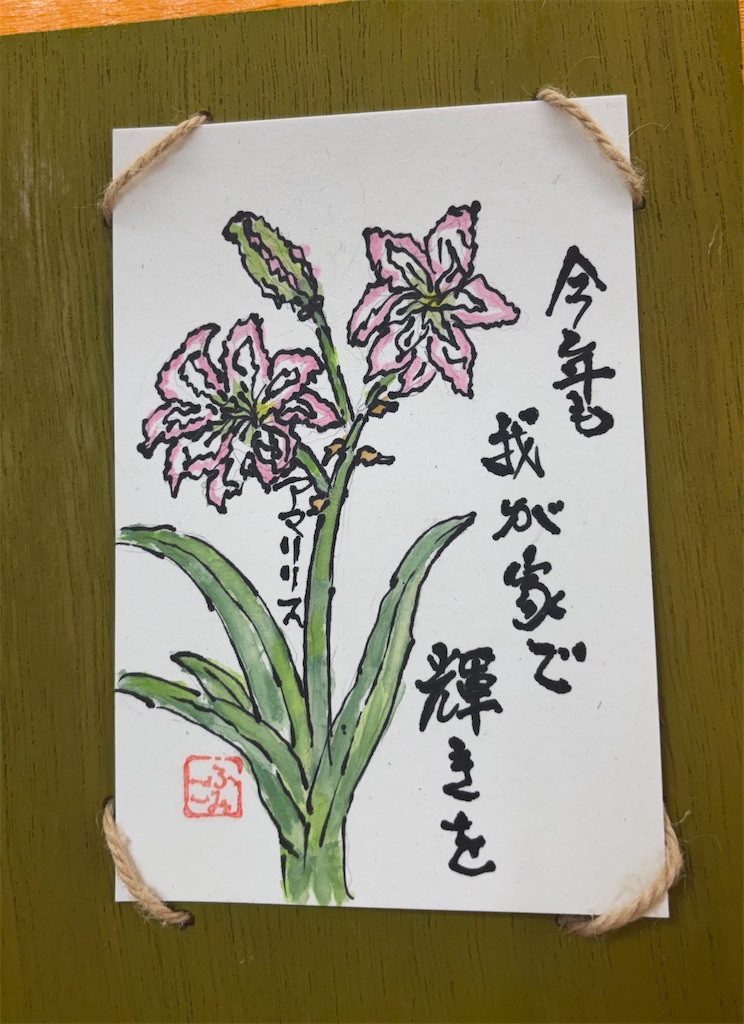 今年も
我が家で
輝きを
アマリリス
ふみこ